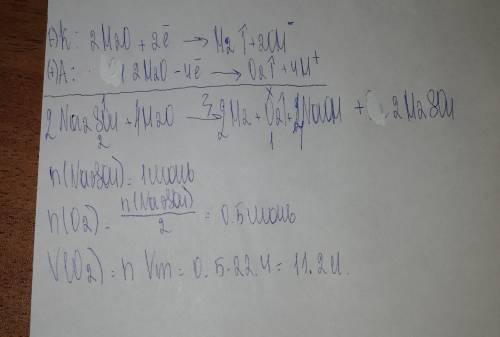 (-)K: 2H2O + 2ē → H2↑ + 2OH⁻
(+)A: 2H2O - 4ē → O2↑ + 4H⁺
x
2Na2SO4 + H2O → 2H2 + O2↑ + NaOH + 2H2SO4
2 1
n(Na2SO4) = 1 моль
n(O2) = n(Na2SO4)/2 = 0.5 моль
V(O2) = n Vm = 0.5·22.4 = 11.2 л.